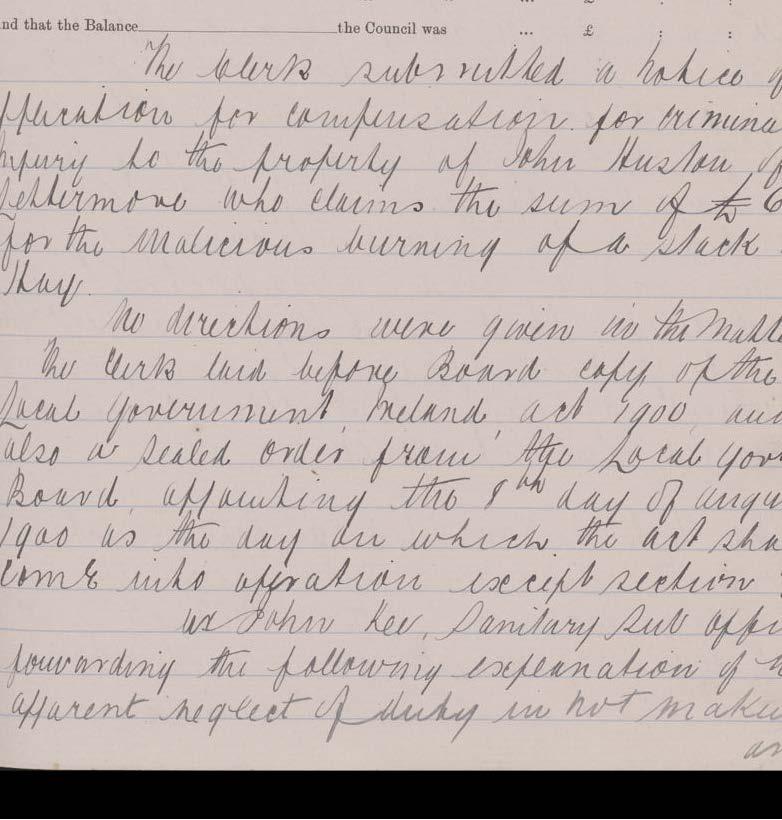 ... £ : :
nd that the Balance the Council was ... £ : :
The Clerk submitted a notice
pplication for compensation for crimina
njury to the property of John Huston of
Lettermore who claims the sum of £6
for the Malicious burning of a stack
Hay.
No directions were given in the Matte
The Clerk laid before Board copy of the
Local Government, Ireland, act 1900, and
also a sealed order from the Local Gov
Board, appointing the 8th day of augu
1900 as the day on which the act sha
come into operation except section
John Kee, Sanitary Sub offi
forwarding the following explanation of
apparent neglect of duty in not makin
an